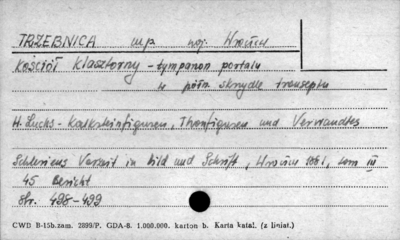 TRZEBNICA m/p woj. Wrocław
Kościół Klasztorny - tympanon portalu
w półn. skrzydle transeptu
H. Luchs - Kalksteinfiguren, Thonfiguren und Verwandtes
Schlesiens Vorzeit in Bild und Schrift, tom III
45 Bericht
Str. 498-499
CWD B-15b.zam. 2899/P. GDA-8. 1.000.000. karton b. Karta katal. (z liniat.)